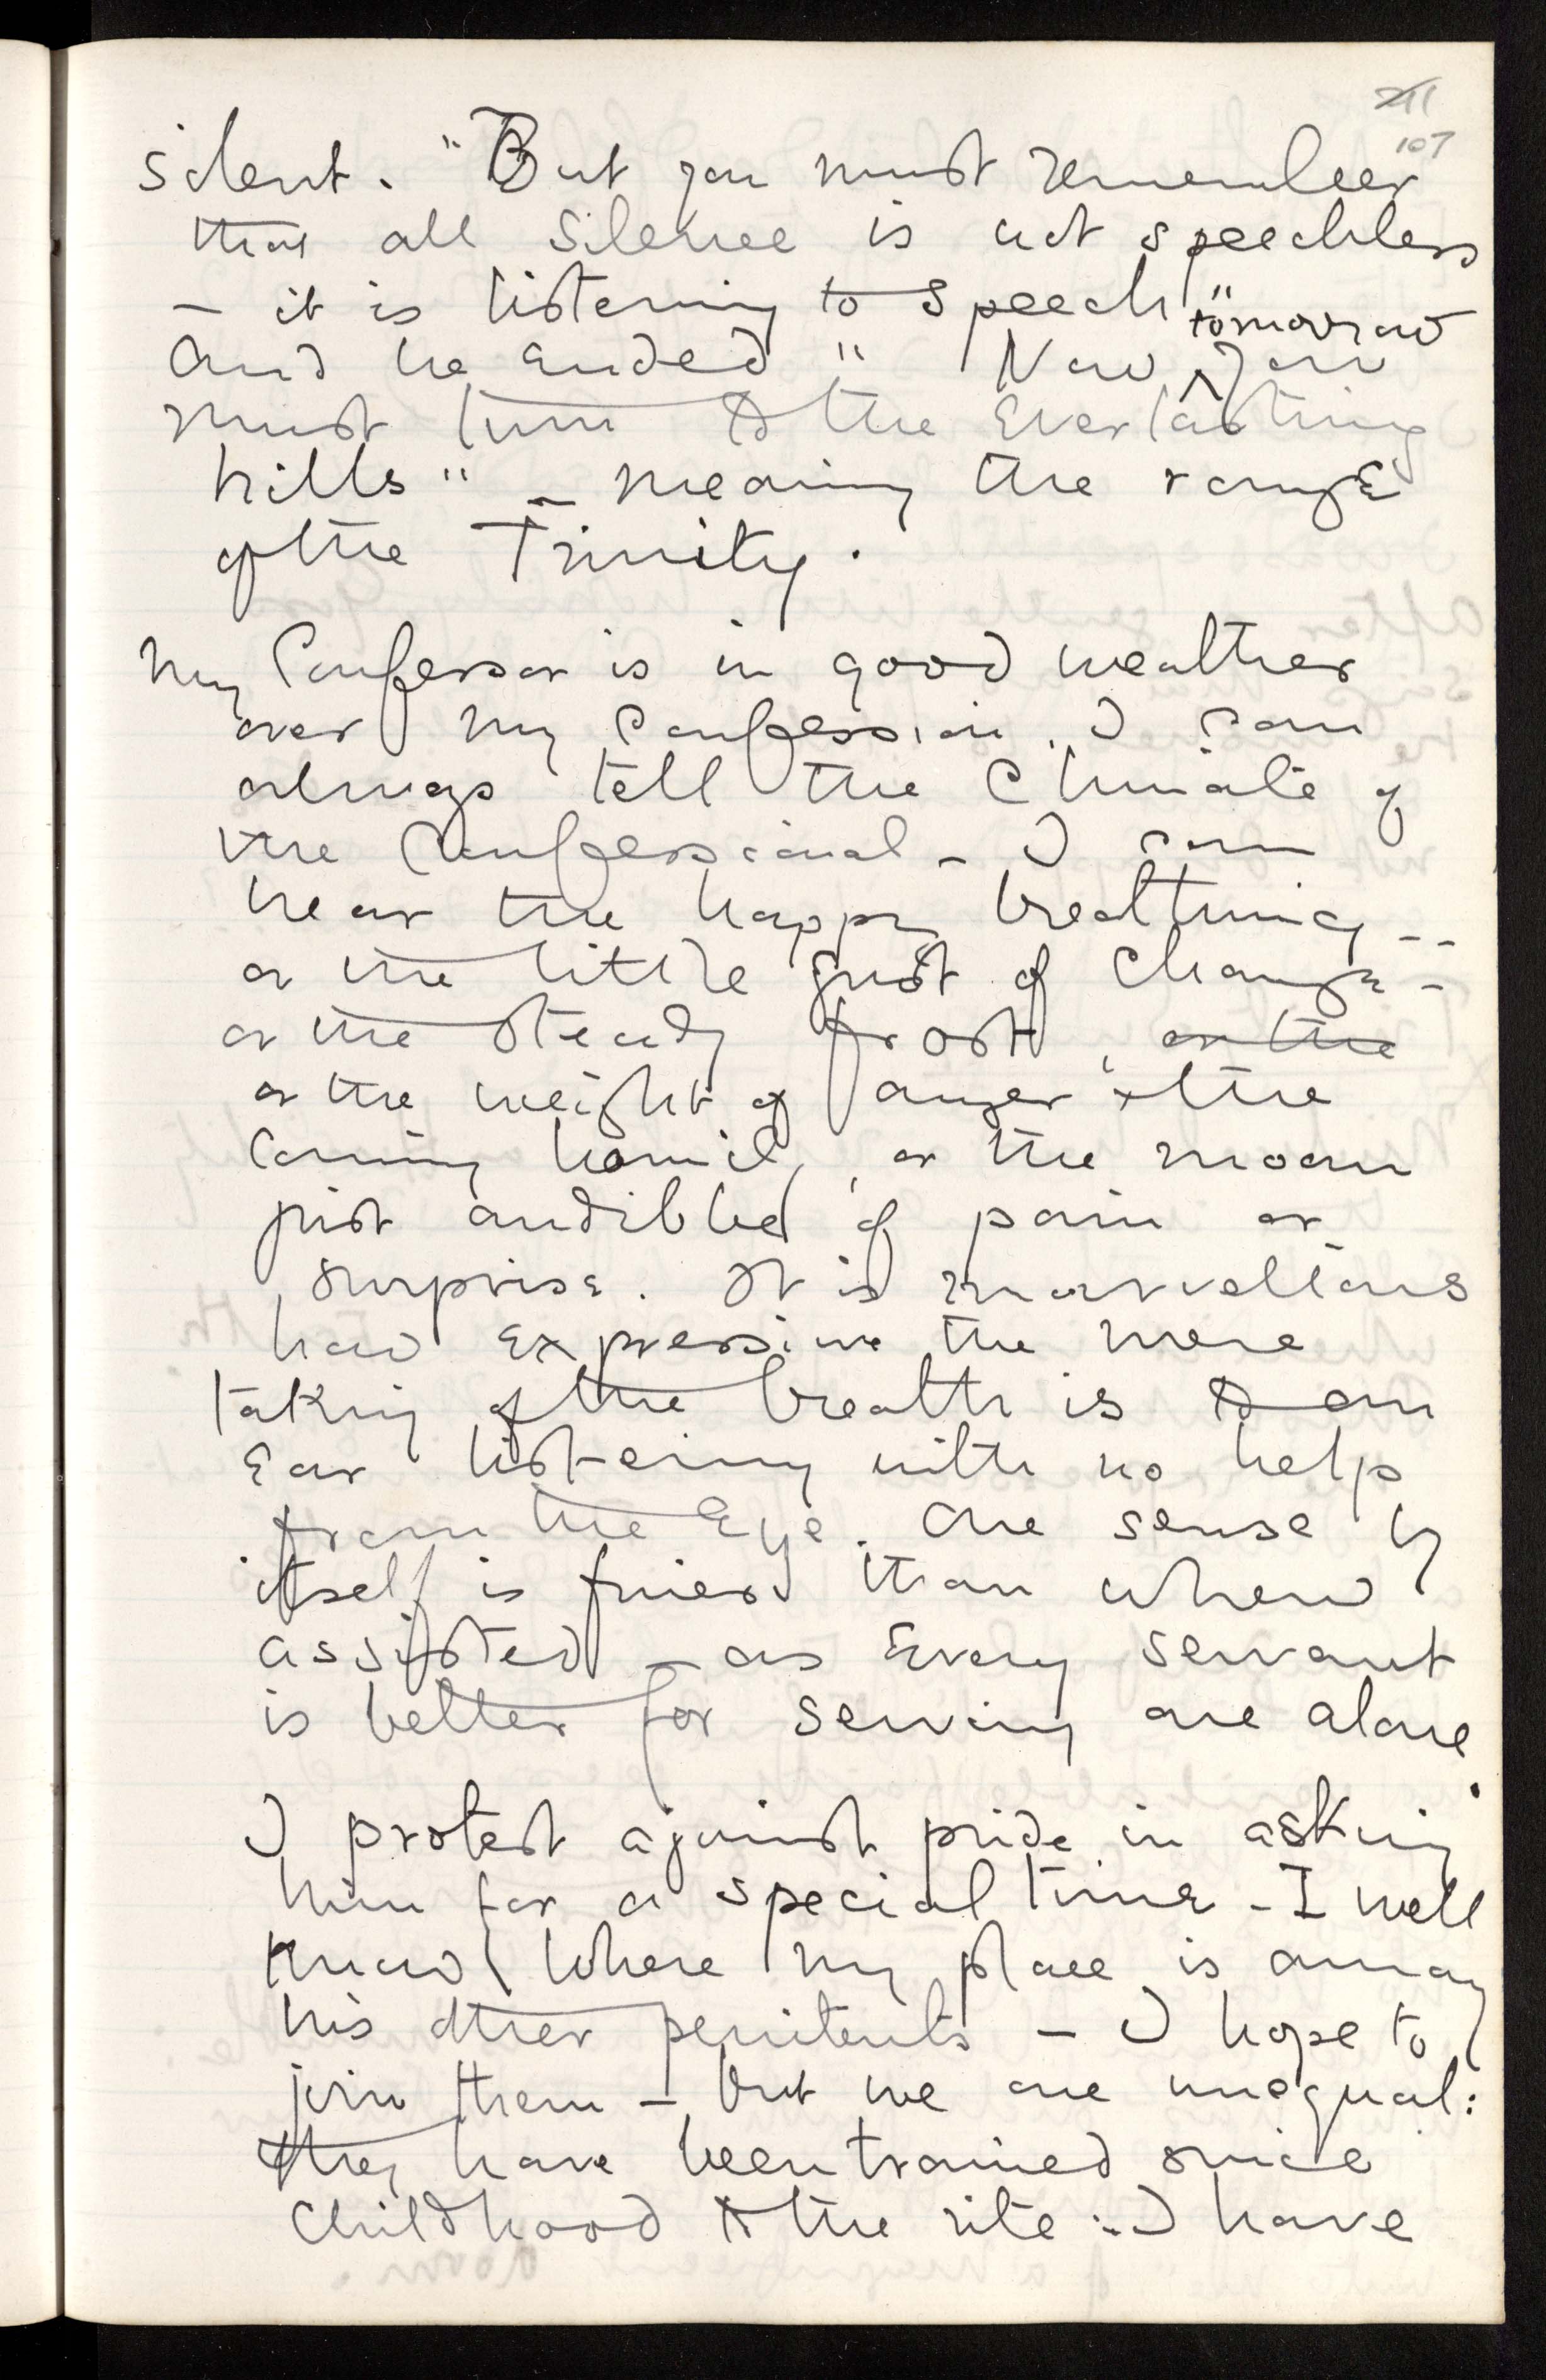 211
107
silent. "But you must remember
that all silence is not speechless
– it is listening to speech"
tomorrow
And he ended " Now ^ you
must turn to the Everlasting
hills" – meaning the range
of the Trinity.
My Confessor is in good weather
over my Confession. I can
always tell the Climate of
the Confessional – I can
hear the happy breathing --
or the little gust of change –
or the steady frost, or the
or the weight of anger & the
Coming homily, or the moan
just audibled of pain or
surprise. It is marvellous
how expressive the mere
taking of the breath is to an
Ear listening with no help
from the Eye. One sense by
itself is finer than when
assisted – as Every servant
is better for serving one alone.
I protest against pride in asking
him for a special time – I well
know where my place is among
his other penitents – I hope to
join them – but we are unequal:
they have been trained since
Childhood to the rite : I have